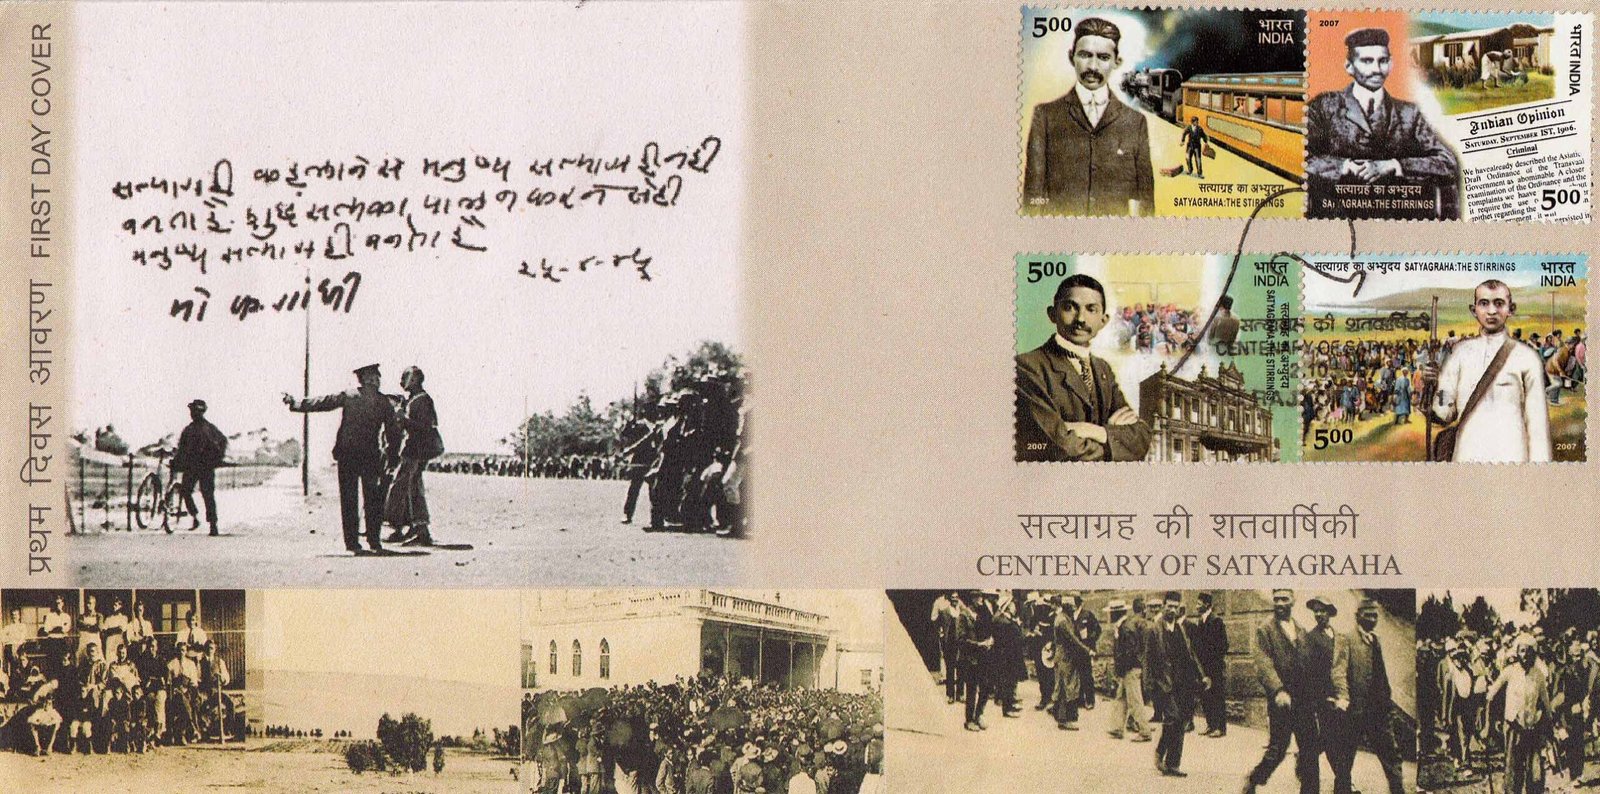 प्रथम दिवस आवरण FIRST DAY COVER
सत्याग्रही कहलाने से मनुष्य सत्याग्रही नहीं
बनता है. शुद्ध सत्यका पालन करने सेही
मनुष्य सत्याग्रही बनता है
२५-४-४५
मो क. गांधी
5.00
भारत
INDIA
सत्याग्रह का अभ्युदय
SATYAGRAHA: THE STIRRINGS
2007
2007
भारत INDIA
Indian Opinion
SATURDAY, SEPTEMBER 1ST, 1906.
Criminal
We have already described the Asiatic
Draft Ordinance of the Transvaal
Government as abominable A closer
examination of the Ordinance and the
complaints we have about
it require the use
regarding the
5.00
सत्याग्रह का अभ्युदय
SATYAGRAHA: THE STIRRINGS
5.00
भारत
INDIA
सत्याग्रह का अभ्युदय
SATYAGRAHA: THE STIRRINGS
2007
सत्याग्रह का अभ्युदय SATYAGRAHA: THE STIRRINGS
भारत
INDIA
5.00
2007
सत्याग्रह की शतवार्षिकी
CENTENARY OF SATYAGRAHA
सत्याग्रह की शतवार्षिकी
CENTENARY OF SATYAGRAHA